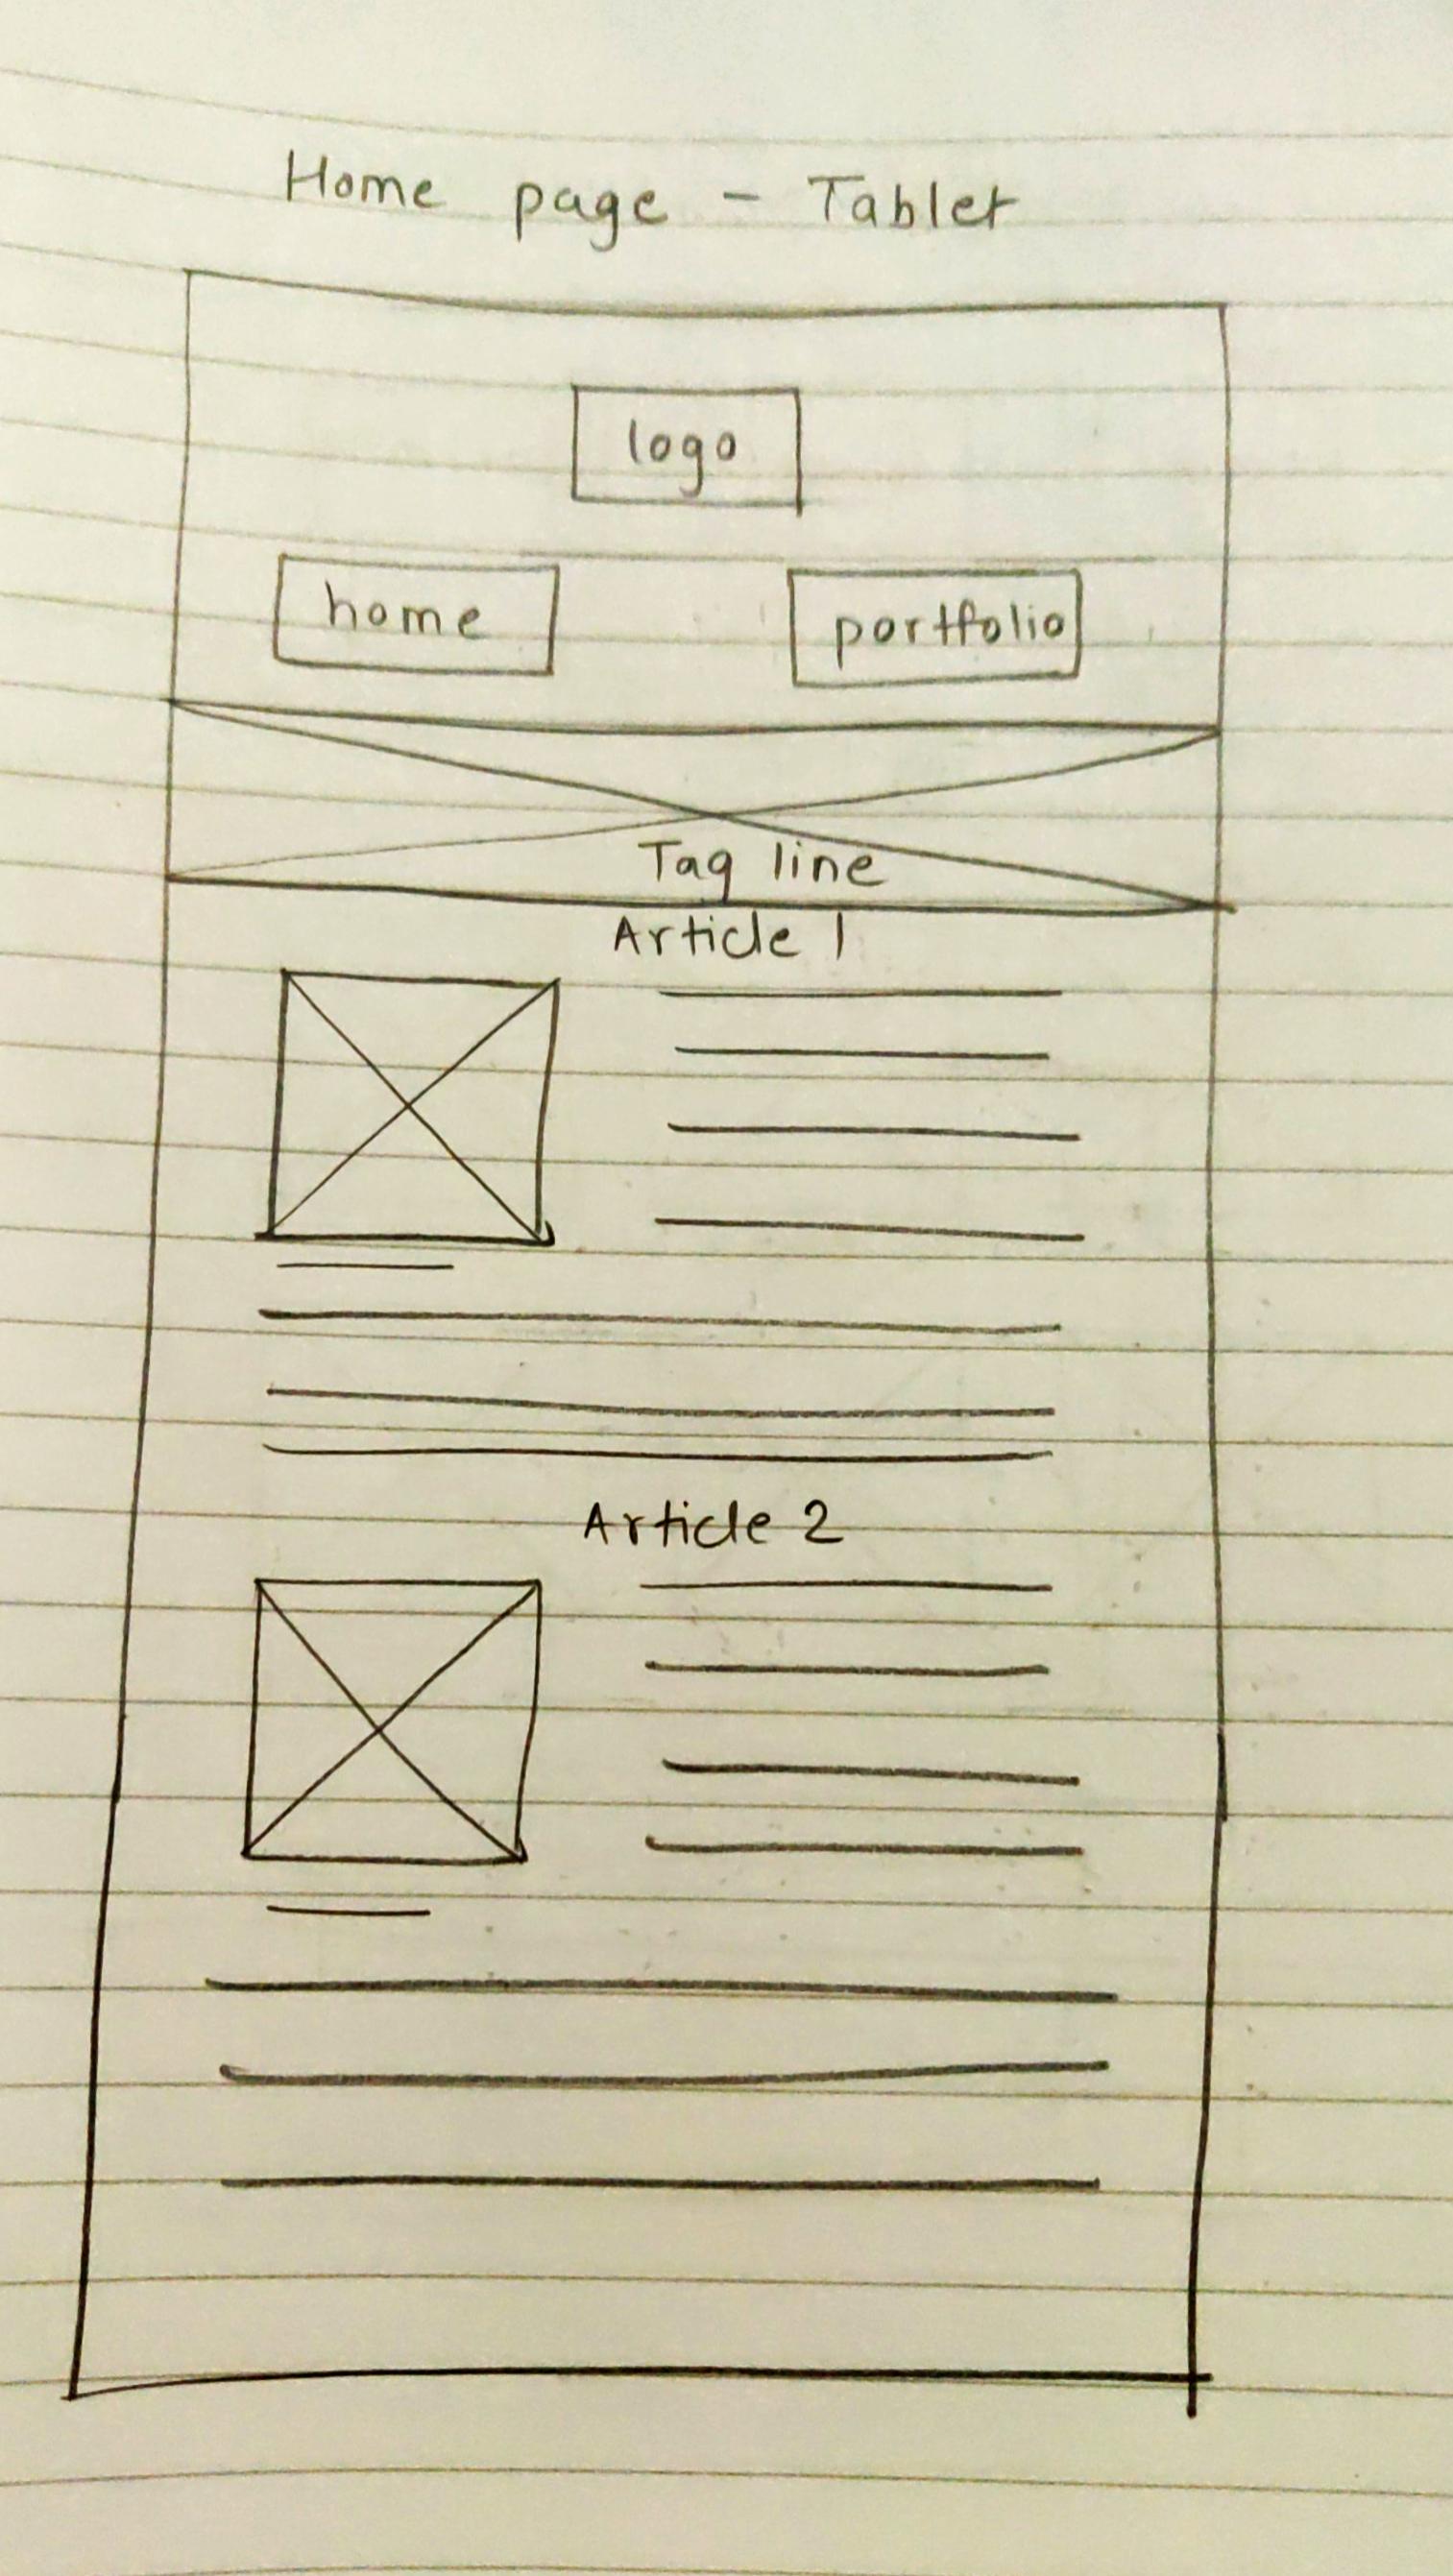 Home page - Tablet
logo
home portfolio
Tag line
Article 1
Article 2